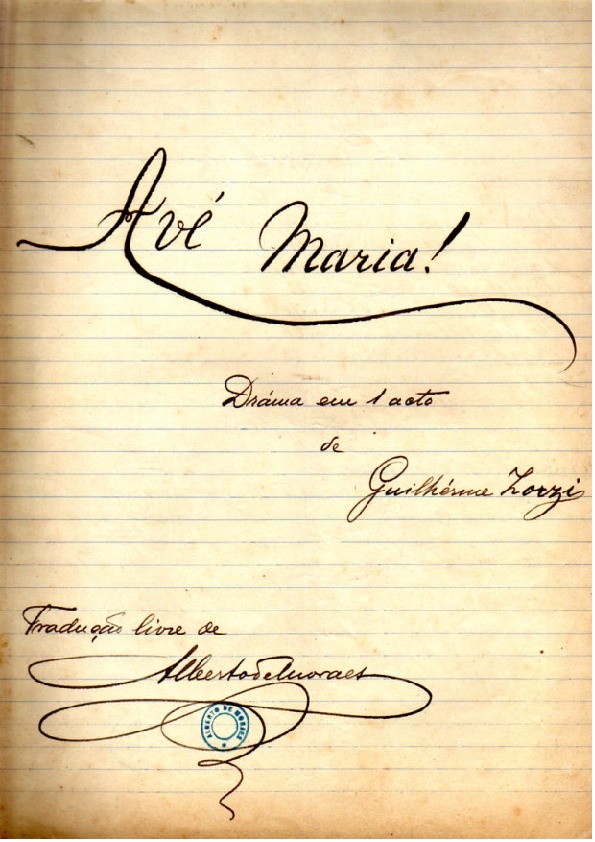 Avé Maria!
Dráma em 1 acto
de
Guilhérme Zorzi
Tradução livre de
Alberto de Moraes
ALBERTO DE MORAES